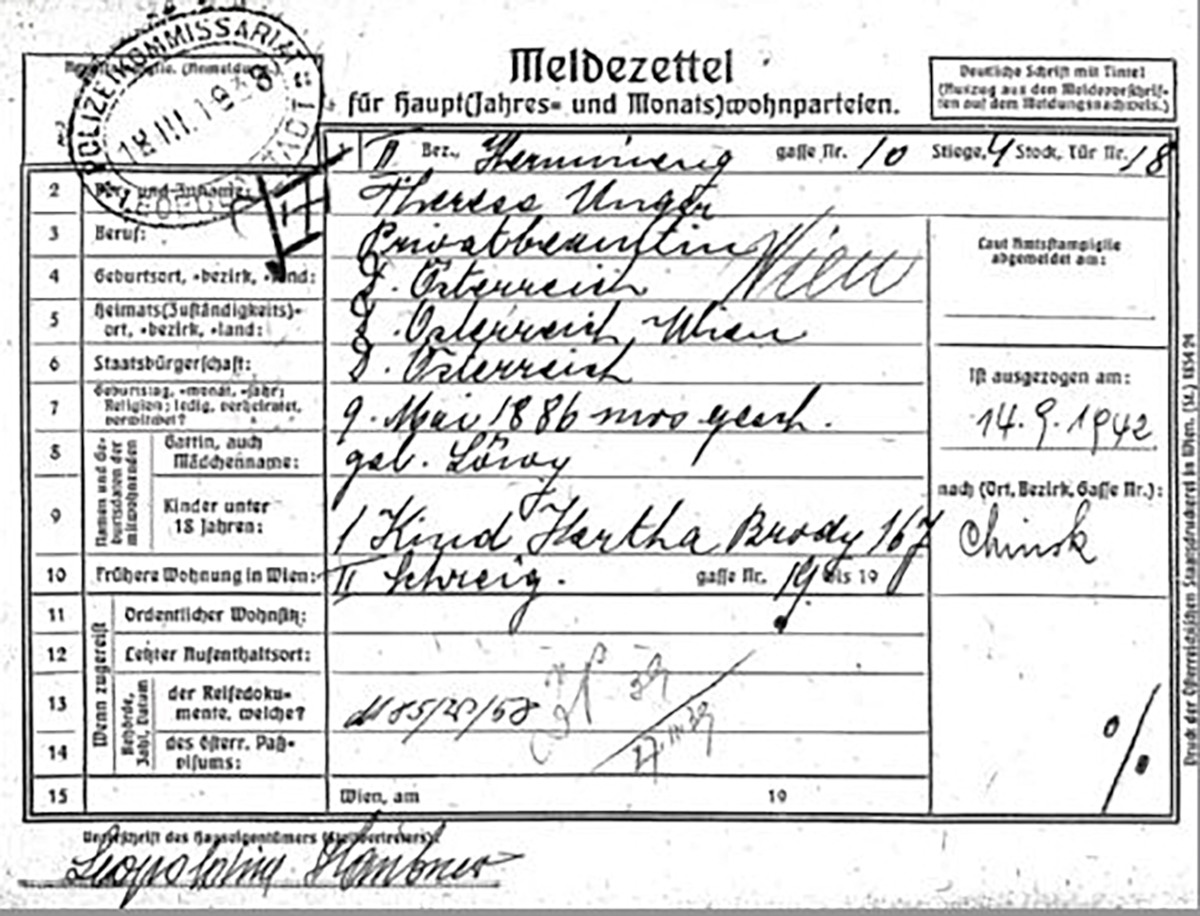 POLIZEIKOMMISSARIAT
18.III.1938
LEOPOLDSTADT
Meldezettel
für Haupt(Jahres- und Monats)wohnparteien.
Deutliche Schrift mit Tinte!
(Auszug aus den Meldevorschrif-
ten auf dem Meldungsnachweis.)
II Bez., Hermineng gasse Nr. 10 Stiege, 4 Stock, Tür Nr. 18
2 Vor- und Zuname: Therese Unger
3 Beruf: Privatbeamtin
Laut Amtsstampiglie
abgemeldet am:
4 Geburtsort, -bezirk, -land: D. Österreich Wien
5 Heimats(Zuständigkeits)-
ort, -bezirk, -land: D. Österreich Wien
6 Staatsbürgerschaft: D. Österreich
Ist ausgezogen am:
14.9.1942
7 Geburtstag, -monat, -jahr;
Religion; ledig, verheiratet,
verwitwet? 9. Mai 1886 mos gesch.
Namen und Ge-
burtsdaten der
mitwohnenden
8 Gattin, auch
Mädchenname: geb. Löwy
nach (Ort, Bezirk, Gasse Nr.):
9 Kinder unter
18 Jahren: 1 Kind Hertha Brody 16J
Chinsk
10 Frühere Wohnung in Wien: II gasse Nr. 19 bis 19
Wenn zugereist
11 Ordentlicher Wohnsitz:
12 Letzter Aufenthaltsort:
Behörde,
Zahl, Datum
13 der Reisedoku-
mente, welche?
14 des österr. Paß-
visums:
15 Wien, am 19
Unterschrift des Hauseigentümers (Stellvertreters):
Leopoldine
Druck der Österreichischen Staatsdruckerei in Wien.